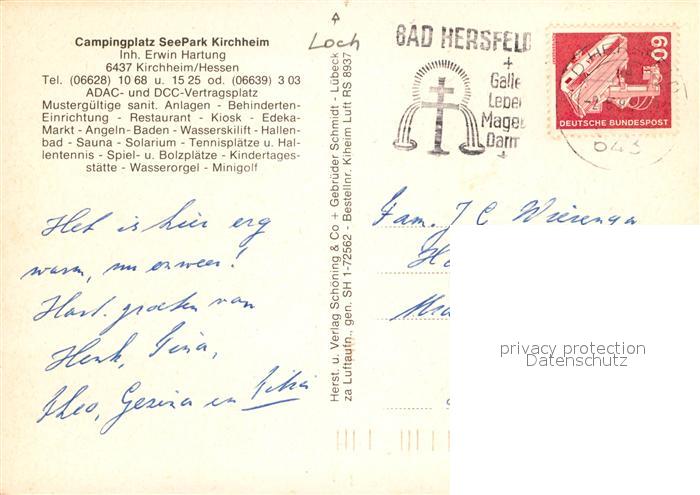 Campingplatz SeePark Kirchheim
Inh. Erwin Hartung
6437 Kirchheim/Hessen
Tel. (06628) 10 68 u. 15 25 od. (06639) 3 03
ADAC- und DCC-Vertragsplatz
Mustergültige sanit. Anlagen - Behinderten-
Einrichtung - Restaurant - Kiosk - Edeka-
Markt - Angeln - Baden - Wasserskilift - Hallen-
bad - Sauna - Solarium - Tennisplätze u. Hal-
lentennis - Spiel- u. Bolzplätze - Kindertages-
stätte - Wasserorgel - Minigolf
Loch
Het is hier erg
warm, nu onweer!
Hart. groeten van
Henk, Tina,
Theo, Gezina en
Herst. u. Verlag Schöning & Co + Gebrüder Schmidt - Lübeck
za Luftaufn., gen. SH 1-72562 - Bestellnr. Kiheim Luft RS 8937
BAD HERSFELD
Galle
Leber
Magen
Darm
60
DEUTSCHE BUNDESPOST
643
Fam. J C Wiersenga
privacy protection
Datenschutz